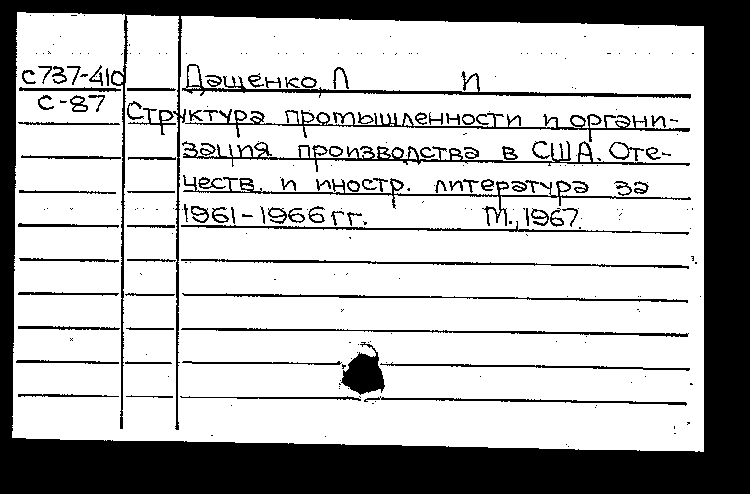 с737-410 Дащенко, Л П
с-87 Структура промышленности и органи-
зация производства в США. Оте-
честв. и иностр. литература за
1961-1966 гг. М., 1967.